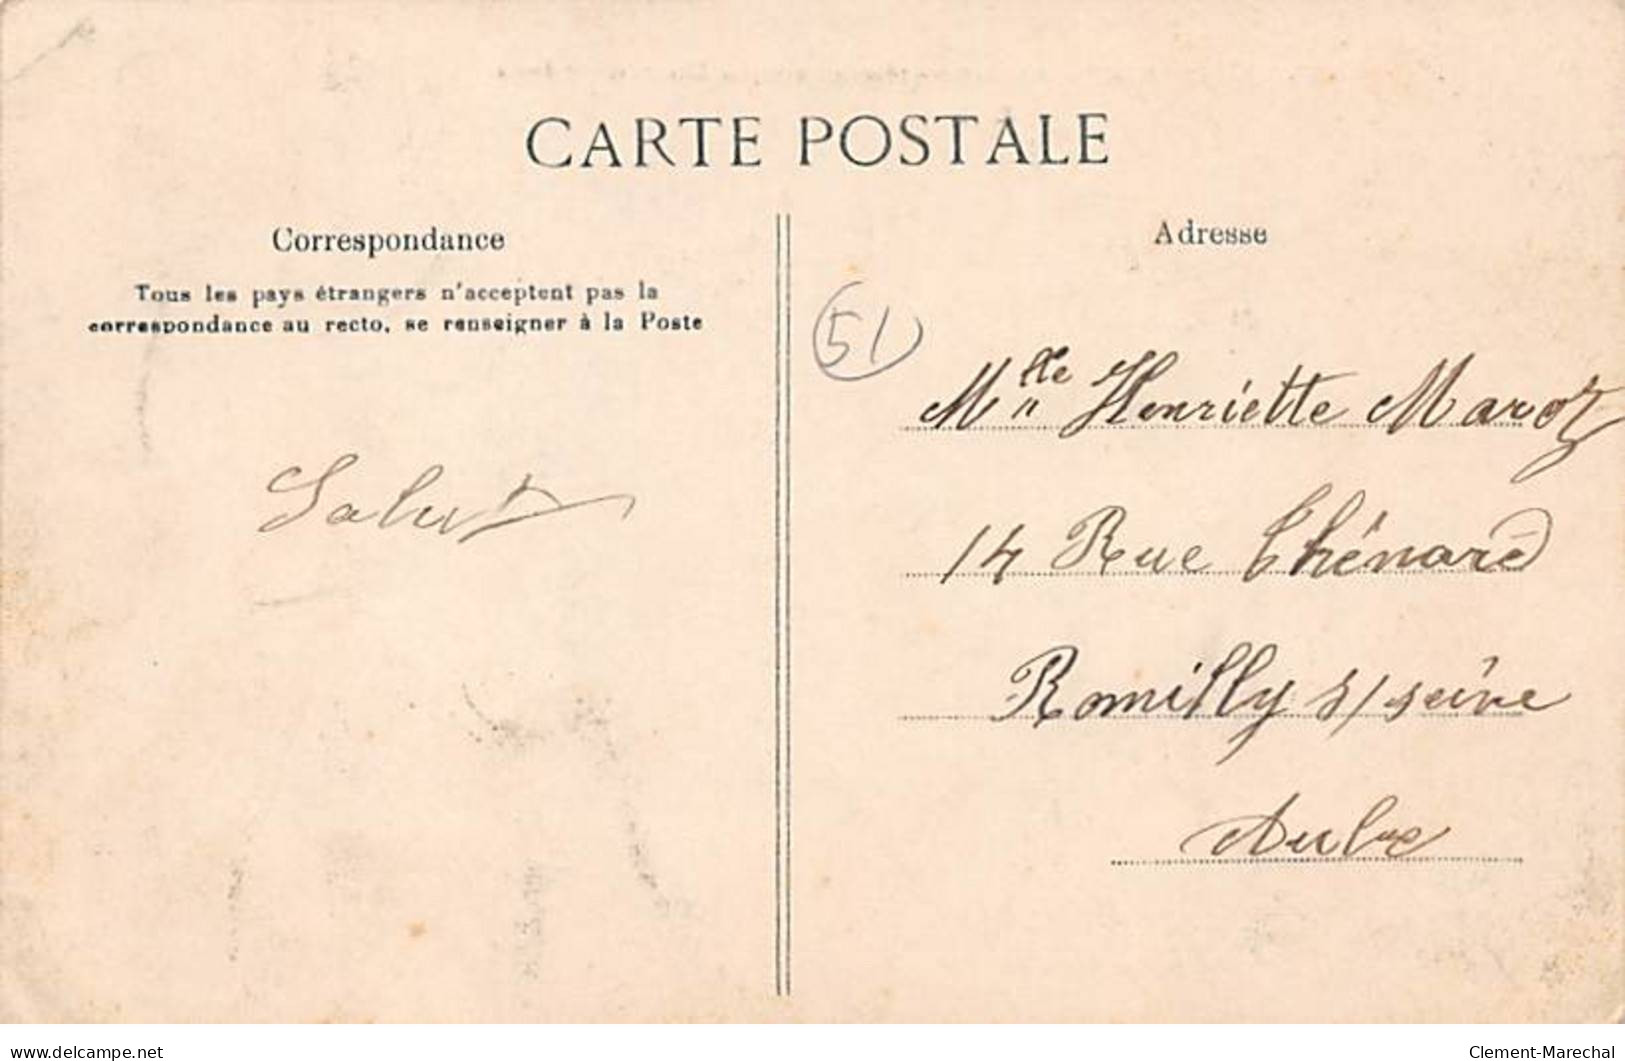 CARTE POSTALE
Correspondance
Tous les pays étrangers n'acceptent pas la
correspondance au recto, se renseigner à la Poste
Salut
Adresse
51
Mlle Henriette Marot
14 Rue Thénard
Romilly s/seine
Aube
www.delcampe.net
Clement-Marechal